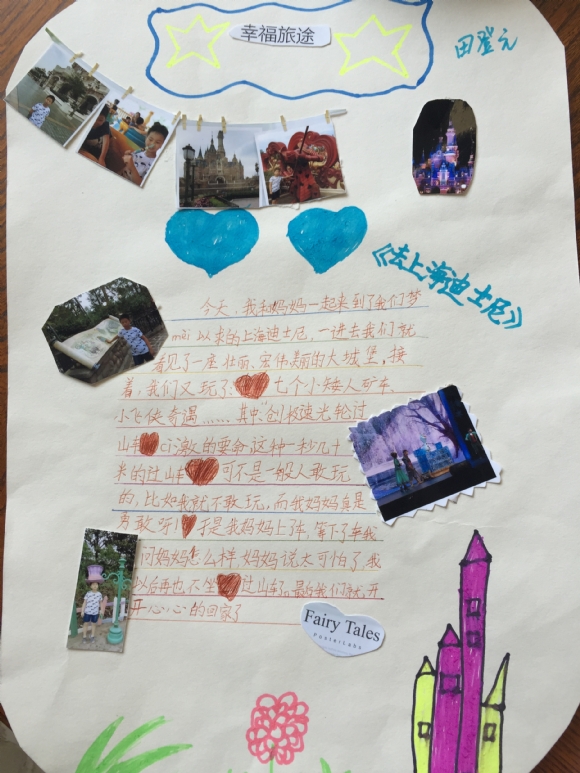 幸福旅途
田登元
《去上海迪士尼》
今天,我和妈妈一起来到了我们梦
mèi以求的上海迪士尼,一进去我们就
看见了一座壮丽、宏伟美丽的大城堡,接
着,我们又玩了、七个小矮人矿车、
小飞侠奇遇……其中"创极速光轮过
山车ci激的要命,这种一秒几十
米的过山车可不是一般人敢玩
的,比如我就不敢玩,而我妈妈真是
勇敢呀!于是我妈妈上了车,等下了车我
问妈妈怎么样,妈妈说太可怕了,我
以后再也不坐过山车了。最后我们就开
开心心的回家了
Fairy Tales